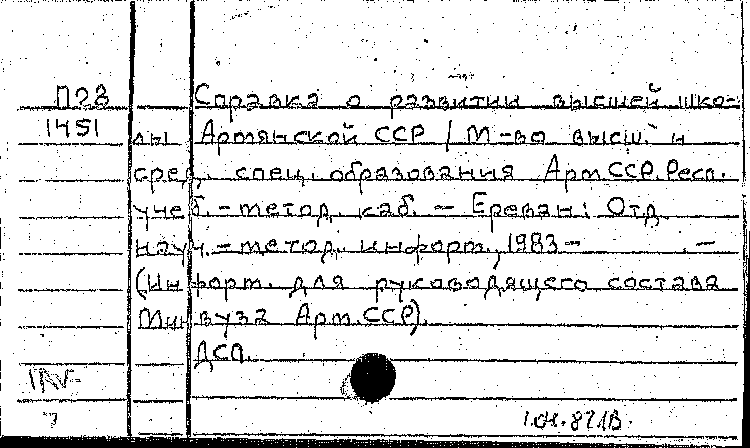 П28 Справка о развитии высшей шко-
1451 лы Армянской ССР / М-во высш. и
сред. спец. образования Арм.ССР. Респ.
учеб.-метод. каб. - Ереван: Отд.
науч.-метод. информ., 1983- . -
(Информ. для руководящего состава
Минвуза Арм.ССР).
ДСП.